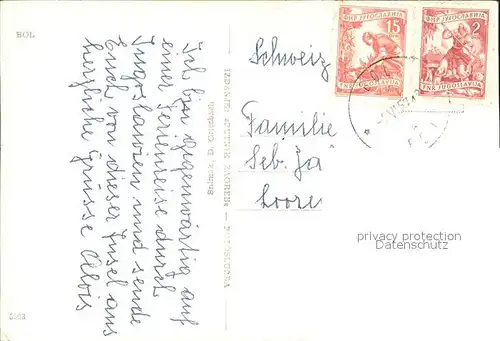 BOL
Ich bin gegenwärtig auf
einer Ferienreise durch
Jugoslawien und sende
Euch von dieser Insel aus
herzliche Grüsse Alois
IZDANJE »PUTNIK ZAGREB« —
Snimak D. Griesbach
Schweiz
Familie
Seb.
ФНР ЈУГОСЛАВИЈА
15
FNR JUGOSLAVIJA
ФНР ЈУГОСЛАВИЈА
2
FNR JUGOSLAVIJA
privacy protection
Datenschutz